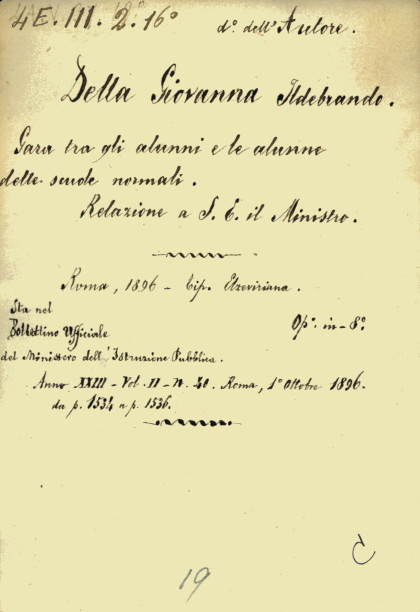 4E. III. 2. 16°
d.° dell'Autore.
Della Giovanna Ildebrando.
Gara tra gli alunni e le alunne
delle scuole normali.
Relazione a S. E. il Ministro.
Roma, 1896 - Tip. Elzeviriana.
Sta nel
Bollettino Ufficiale
Op.° in-8°
del Ministero dell'Istruzione Pubblica.
Anno XXIII - Vol. II - N. 40. Roma, 1° Ottobre 1896.
da p. 1534 a p. 1536.
19